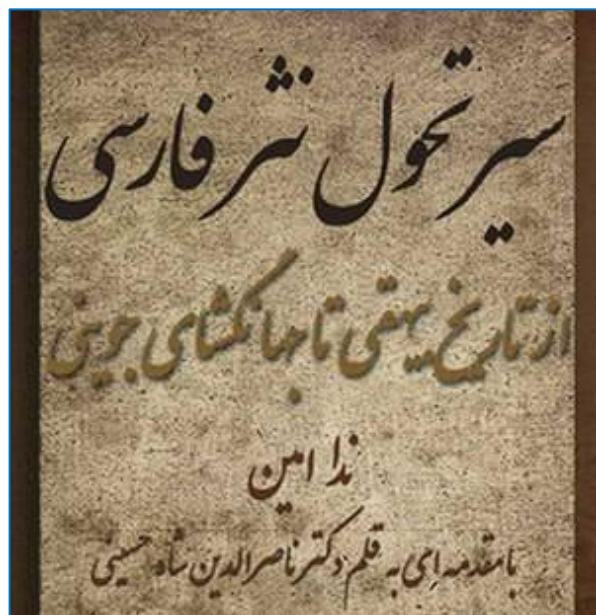 سیر تحول نثر فارسی
از تاریخ بیهقی تا جهانگشای جوینی
ندا امین
با مقدمه‌ای به قلم دکتر ناصرالدین شاه حسینی